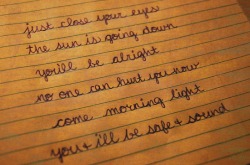 just close your eyes
the sun is going down
you'll be alright
no one can hurt you now
come morning light
you + i'll be safe + sound